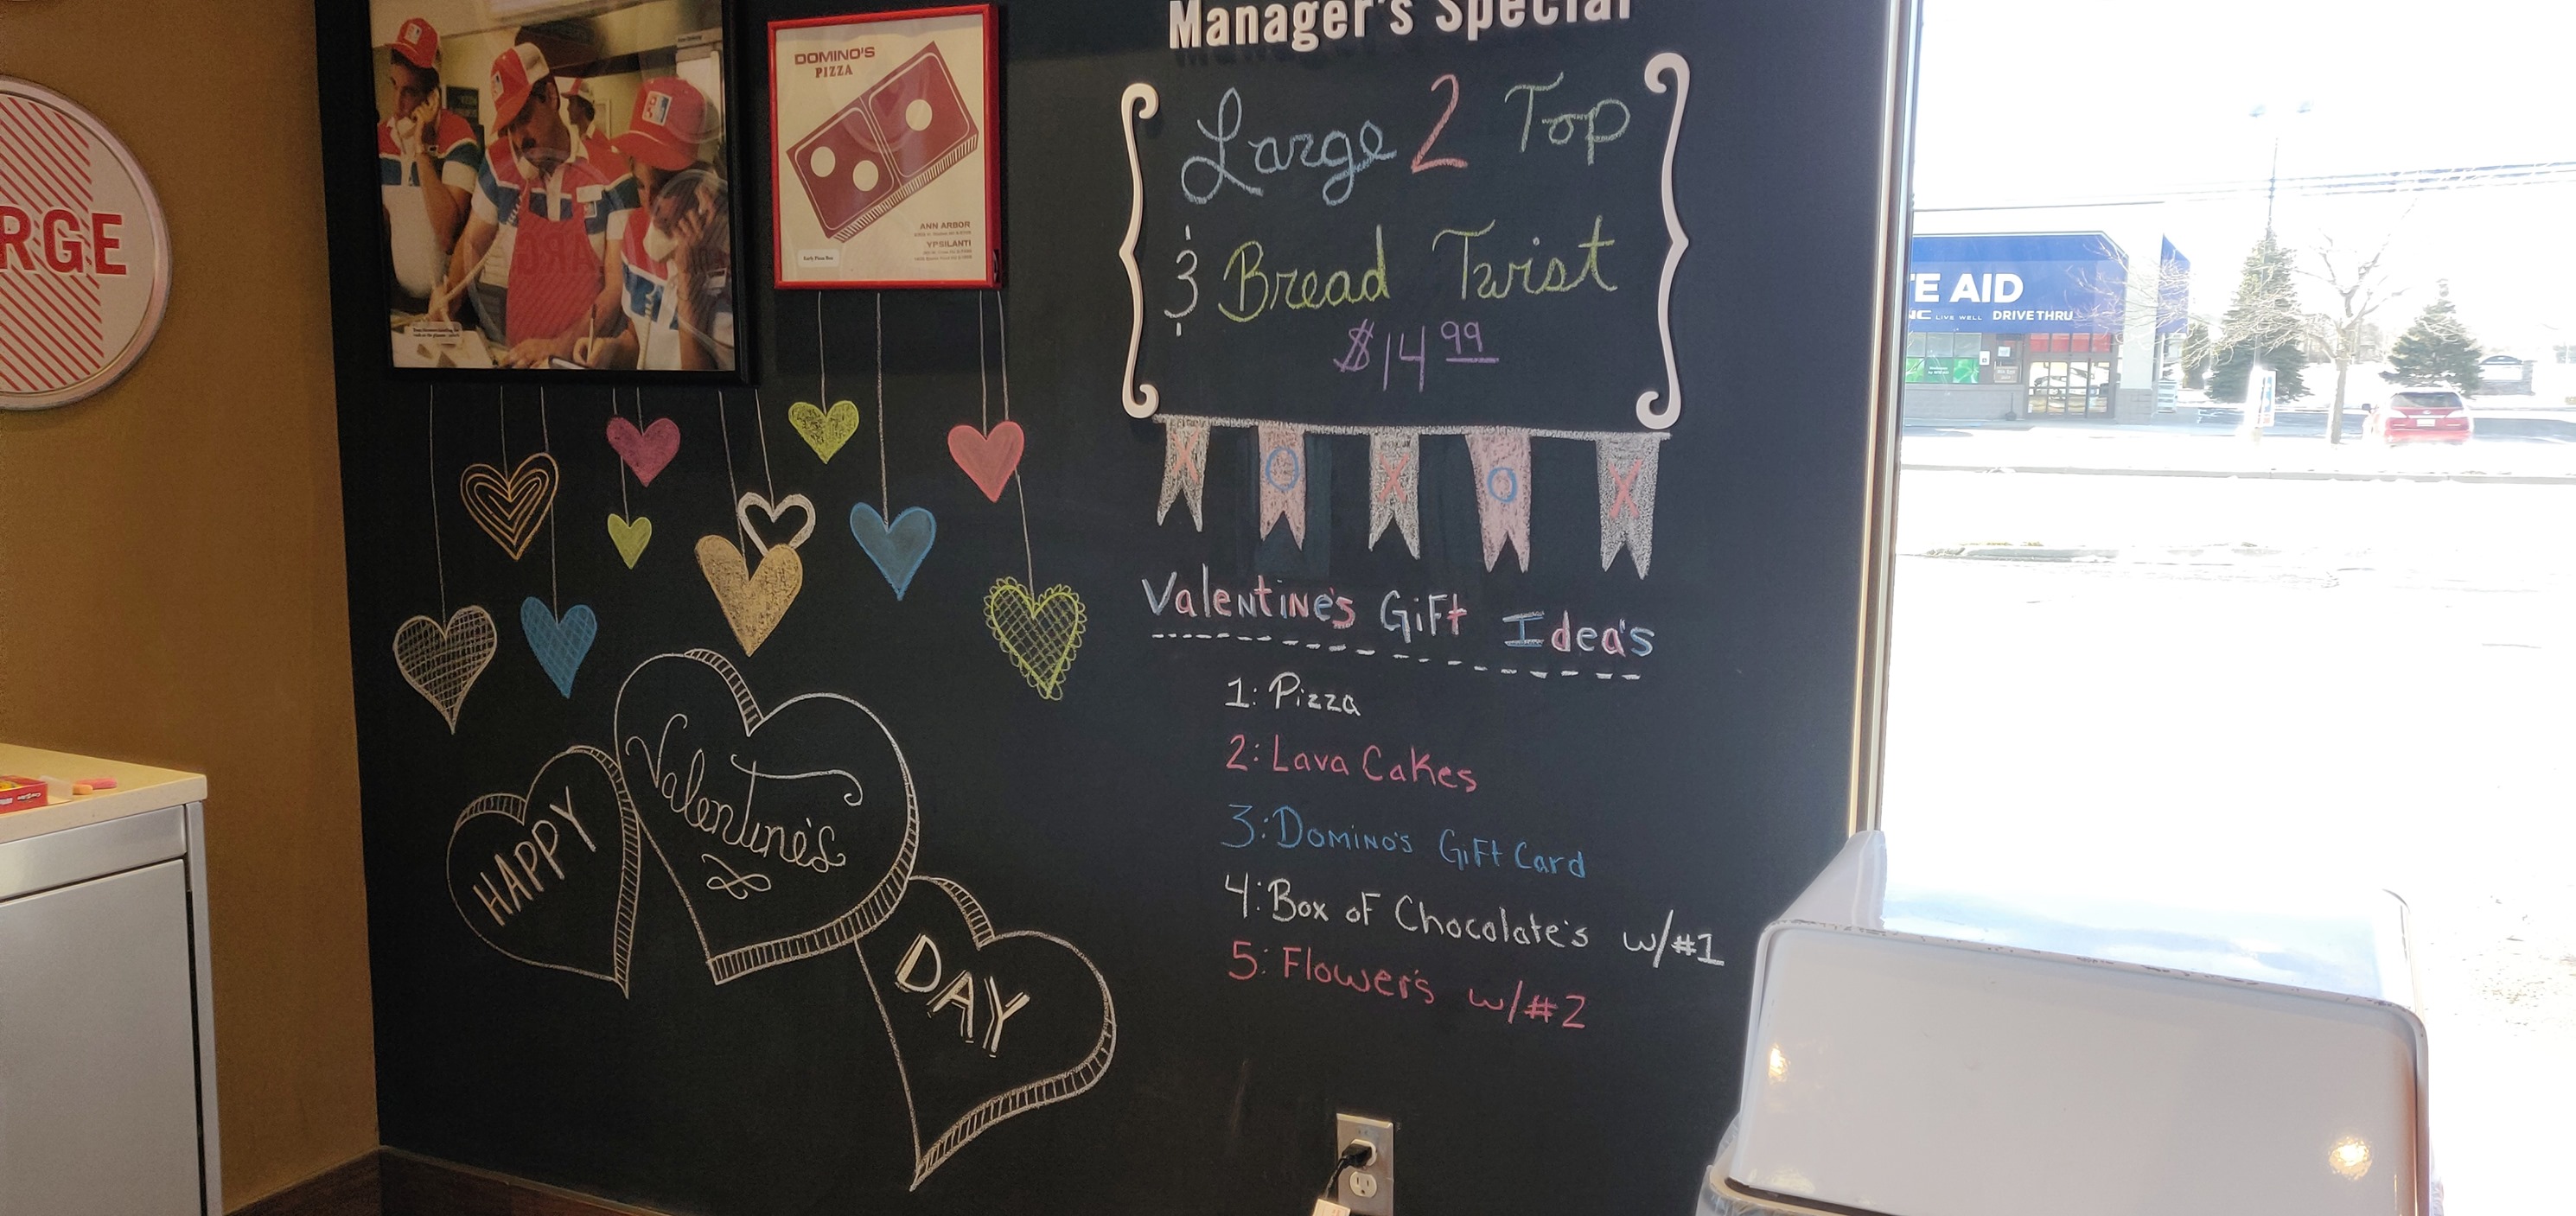 RGE
DOMINO'S
PIZZA
ANN ARBOR
YPSILANTI
Early Pizza Box
Manager's Special
Large 2 Top
& Bread Twist
$14.99
X O X O X
Valentine's Gift Idea's
1: Pizza
2: Lava Cakes
3: Domino's Gift Card
4: Box of Chocolate's w/#1
5: Flower's w/#2
HAPPY
Valentine's
DAY
TE AID
NC LIVE WELL DRIVE THRU